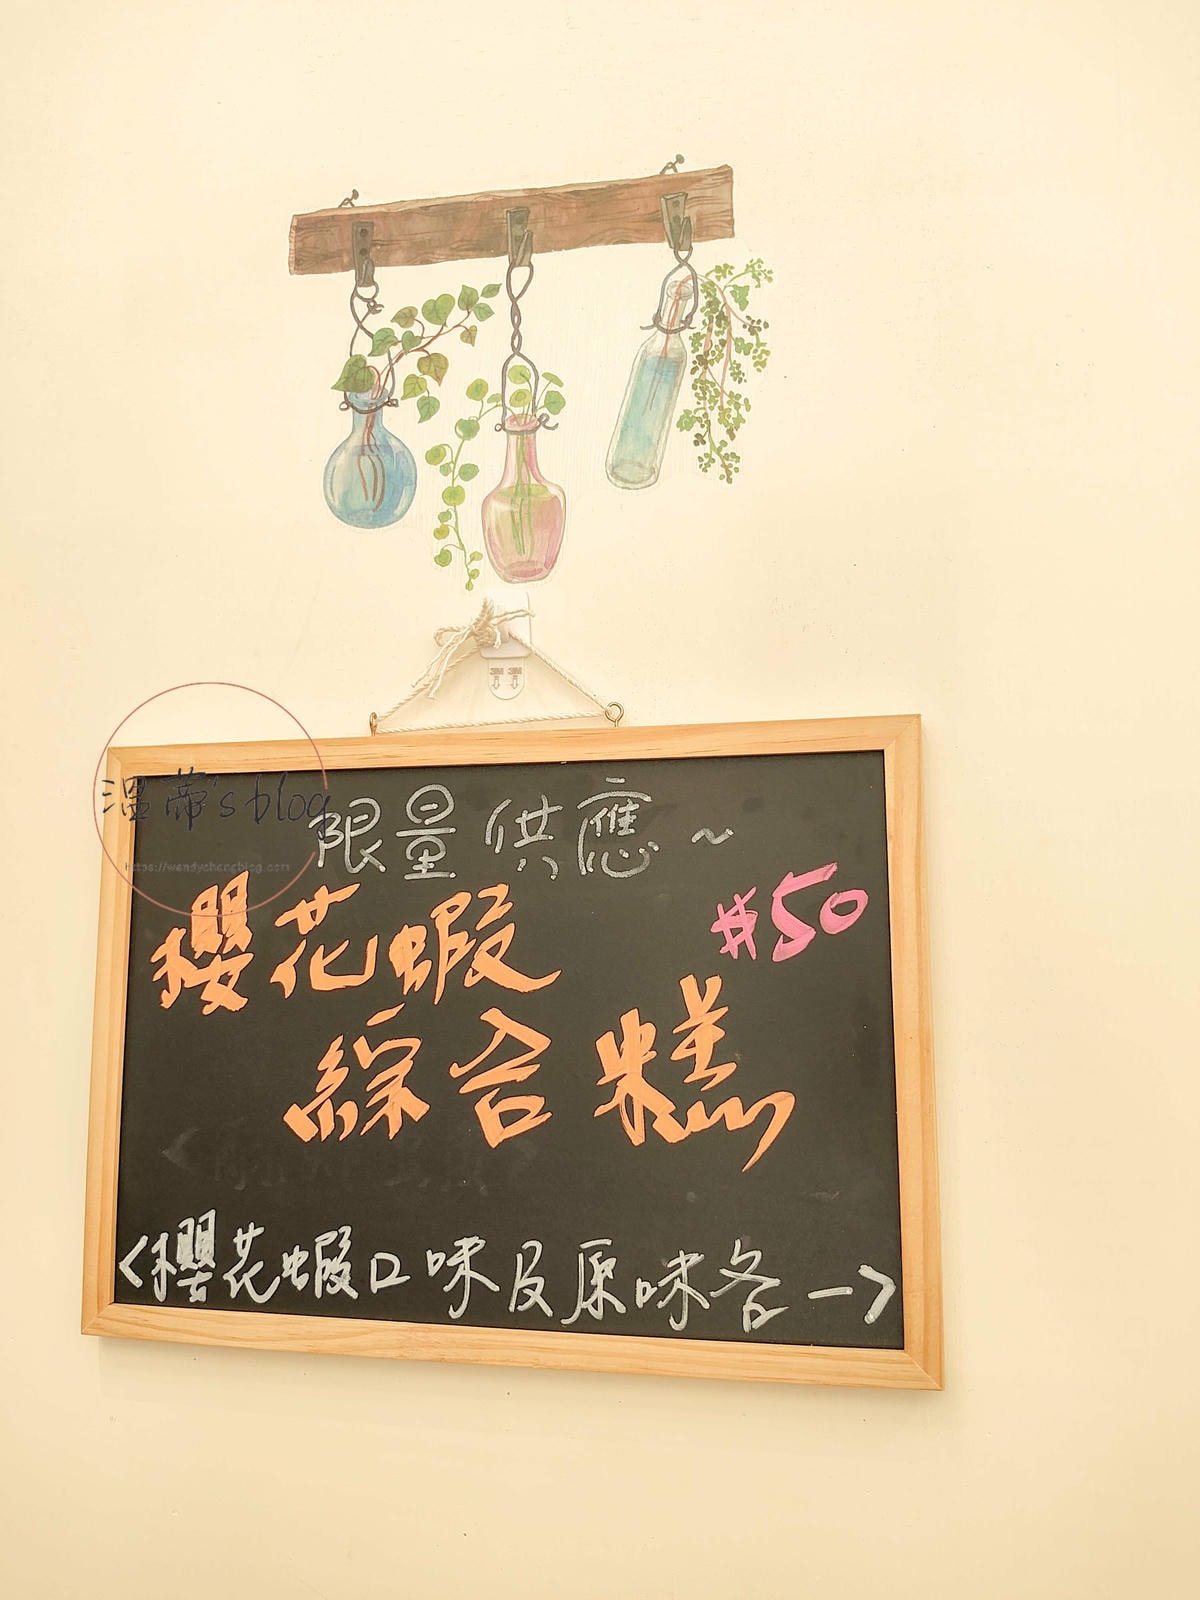 3M 3M
溫蒂's blog
https://wendychengblog.com
限量供應~
櫻花蝦
#50
綜合糕
<櫻花蝦口味及原味各一>